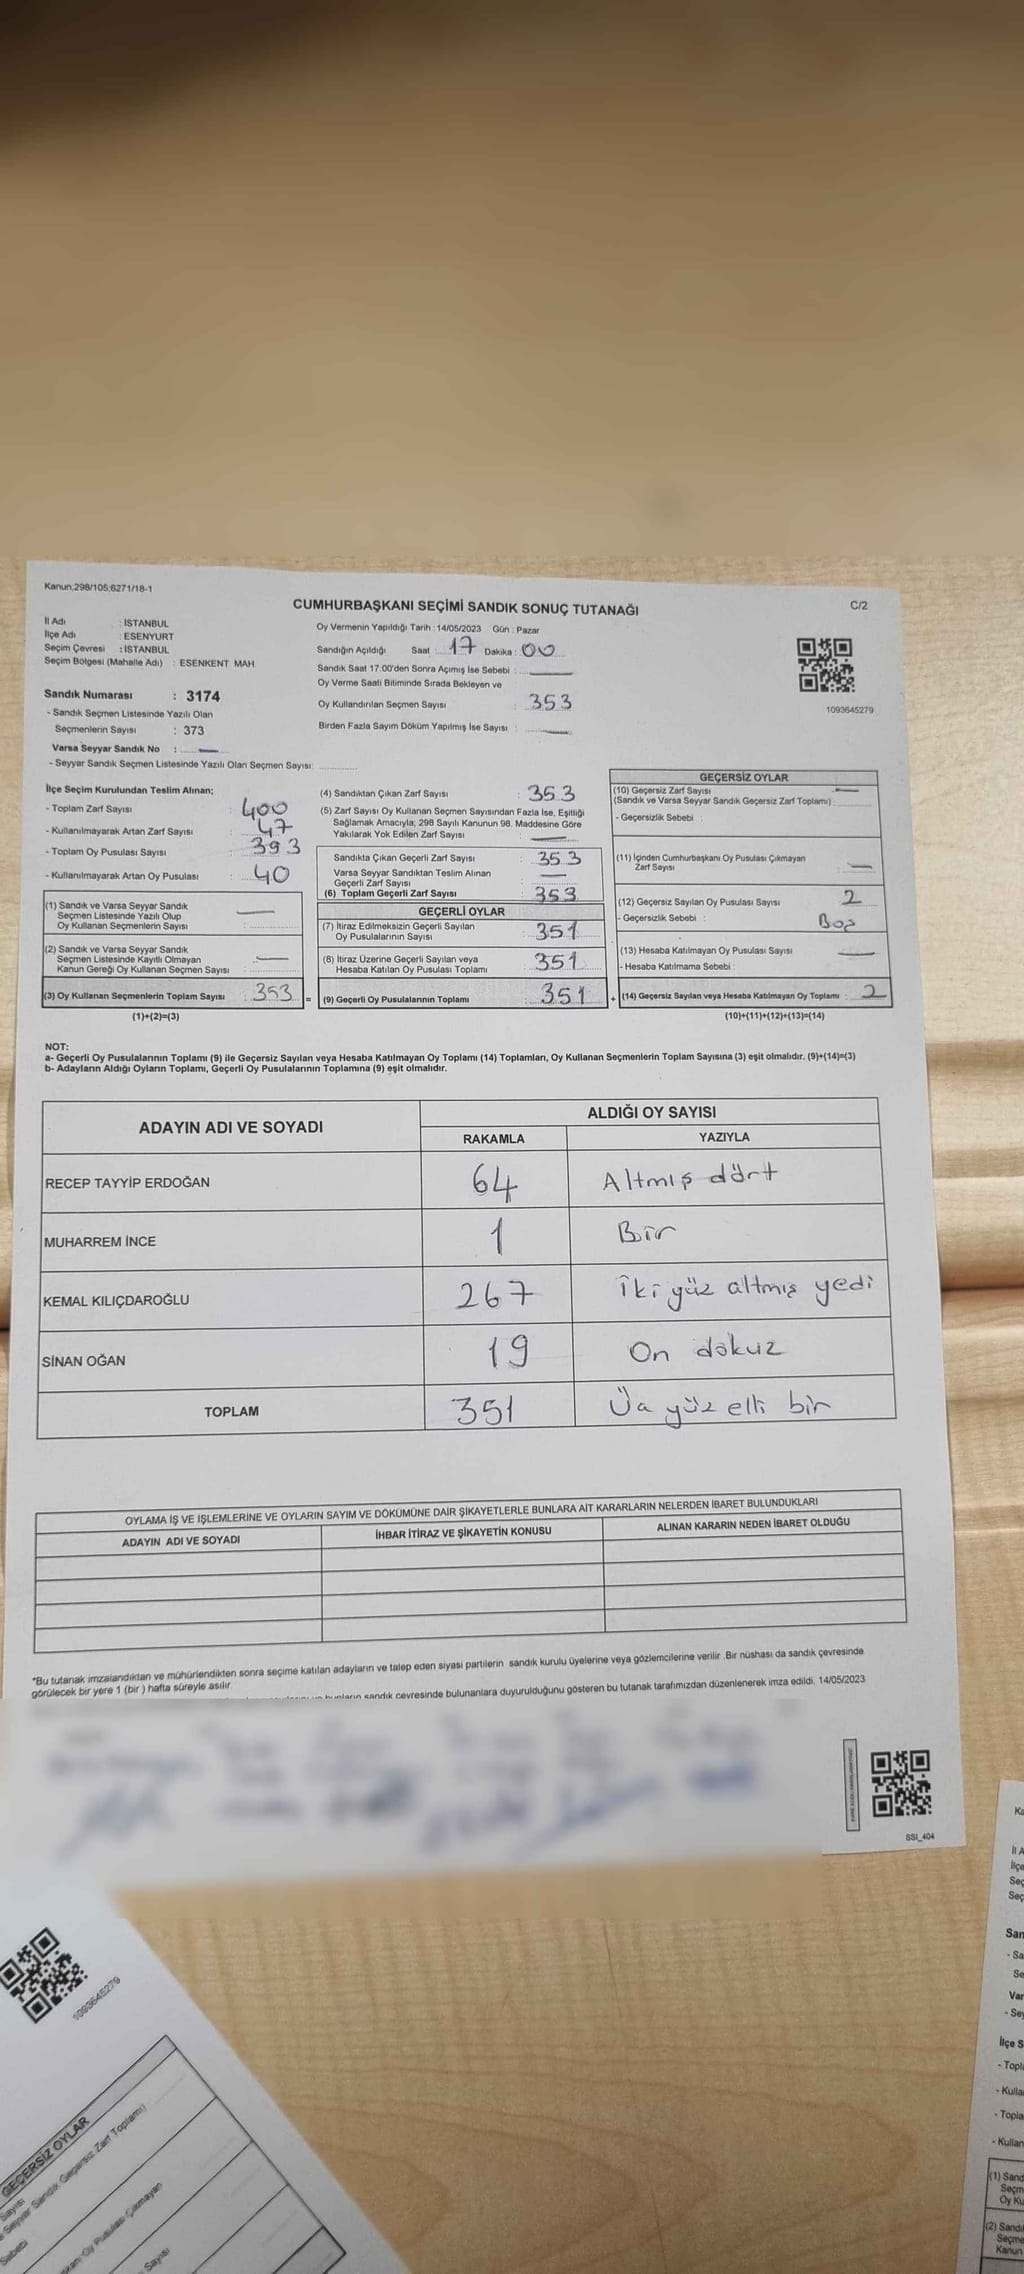 Kanun;298/105;6271/18-1
CUMHURBAŞKANI SEÇİMİ SANDIK SONUÇ TUTANAĞI
C/2
İl Adı : İSTANBUL
İlçe Adı : ESENYURT
Seçim Çevresi : İSTANBUL
Seçim Bölgesi (Mahalle Adı) : ESENKENT MAH.
Sandık Numarası : 3174
- Sandık Seçmen Listesinde Yazılı Olan
Seçmenlerin Sayısı : 373
Varsa Seyyar Sandık No : —
- Seyyar Sandık Seçmen Listesinde Yazılı Olan Seçmen Sayısı:
Oy Vermenin Yapıldığı Tarih : 14/05/2023 Gün : Pazar
Sandığın Açıldığı Saat : 17 Dakika : 00
Sandık Saat 17:00'den Sonra Açımış İse Sebebi : —
Oy Verme Saati Bitiminde Sırada Bekleyen ve
Oy Kullandırılan Seçmen Sayısı : 353
Birden Fazla Sayım Döküm Yapılmış İse Sayısı : —
1093645279
İlçe Seçim Kurulundan Teslim Alınan;
- Toplam Zarf Sayısı : 400
- Kullanılmayarak Artan Zarf Sayısı : 47
- Toplam Oy Pusulası Sayısı : 393
- Kullanılmayarak Artan Oy Pusulası : 40
(1) Sandık ve Varsa Seyyar Sandık
Seçmen Listesinde Yazılı Olup
Oy Kullanan Seçmenlerin Sayısı : —
(2) Sandık ve Varsa Seyyar Sandık
Seçmen Listesinde Kayıtlı Olmayan
Kanun Gereği Oy Kullanan Seçmen Sayısı : —
(3) Oy Kullanan Seçmenlerin Toplam Sayısı : 353 =
(1)+(2)=(3)
(4) Sandıktan Çıkan Zarf Sayısı : 353
(5) Zarf Sayısı Oy Kullanan Seçmen Sayısından Fazla İse, Eşitliği
Sağlamak Amacıyla; 298 Sayılı Kanunun 98. Maddesine Göre
Yakılarak Yok Edilen Zarf Sayısı : —
Sandıkta Çıkan Geçerli Zarf Sayısı : 353
Varsa Seyyar Sandıktan Teslim Alınan
Geçerli Zarf Sayısı : —
(6) Toplam Geçerli Zarf Sayısı : 353
GEÇERLİ OYLAR
(7) İtiraz Edilmeksizin Geçerli Sayılan
Oy Pusulalarının Sayısı : 351
(8) İtiraz Üzerine Geçerli Sayılan veya
Hesaba Katılan Oy Pusulası Toplamı : 351
(9) Geçerli Oy Pusulalarının Toplamı : 351 +
GEÇERSİZ OYLAR
(10) Geçersiz Zarf Sayısı : —
(Sandık ve Varsa Seyyar Sandık Geçersiz Zarf Toplamı) :
- Geçersizlik Sebebi :
(11) İçinden Cumhurbaşkanı Oy Pusulası Çıkmayan
Zarf Sayısı : —
(12) Geçersiz Sayılan Oy Pusulası Sayısı : 2
- Geçersizlik Sebebi : Boş
(13) Hesaba Katılmayan Oy Pusulası Sayısı : —
- Hesaba Katılmama Sebebi :
(14) Geçersiz Sayılan veya Hesaba Katılmayan Oy Toplamı : 2
(10)+(11)+(12)+(13)=(14)
NOT:
a- Geçerli Oy Pusulalarının Toplamı (9) ile Geçersiz Sayılan veya Hesaba Katılmayan Oy Toplamı (14) Toplamları, Oy Kullanan Seçmenlerin Toplam Sayısına (3) eşit olmalıdır. (9)+(14)=(3)
b- Adayların Aldığı Oyların Toplamı, Geçerli Oy Pusulalarının Toplamına (9) eşit olmalıdır.
ADAYIN ADI VE SOYADI ALDIĞI OY SAYISI
RAKAMLA YAZIYLA
RECEP TAYYİP ERDOĞAN 64 Altmış dört
MUHARREM İNCE 1 Bir
KEMAL KILIÇDAROĞLU 267 İki yüz altmış yedi
SİNAN OĞAN 19 On dokuz
TOPLAM 351 Üç yüz elli bir
OYLAMA İŞ VE İŞLEMLERİNE VE OYLARIN SAYIM VE DÖKÜMÜNE DAİR ŞİKAYETLERLE BUNLARA AİT KARARLARIN NELERDEN İBARET BULUNDUKLARI
ADAYIN ADI VE SOYADI İHBAR İTİRAZ VE ŞİKAYETİN KONUSU ALINAN KARARIN NEDEN İBARET OLDUĞU
*Bu tutanak imzalandıktan ve mühürlendikten sonra seçime katılan adayların ve talep eden siyasi partilerin sandık kurulu üyelerine veya gözlemcilerine verilir. Bir nüshası da sandık çevresinde
görülecek bir yere 1 (bir) hafta süreyle asılır.
bunların sandık çevresinde bulunanlara duyurulduğunu gösteren bu tutanak tarafımızdan düzenlenerek imza edildi. 14/05/2023
SSI_404
1093645279
GEÇERSİZ OYLAR